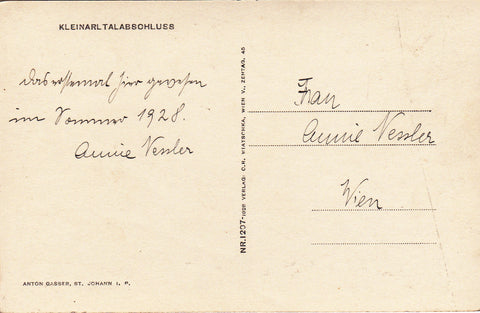 KLEINARLTALABSCHLUSS
das erstemal hier gewesen
im Sommer 1928.
Annie Vessler
Frau
Annie Vessler
Wien
NR.1297-1928 VERLAG: C.R. WIATSCHKA, WIEN V., ZENTAG. 45
ANTON GASSER, ST. JOHANN I. P.